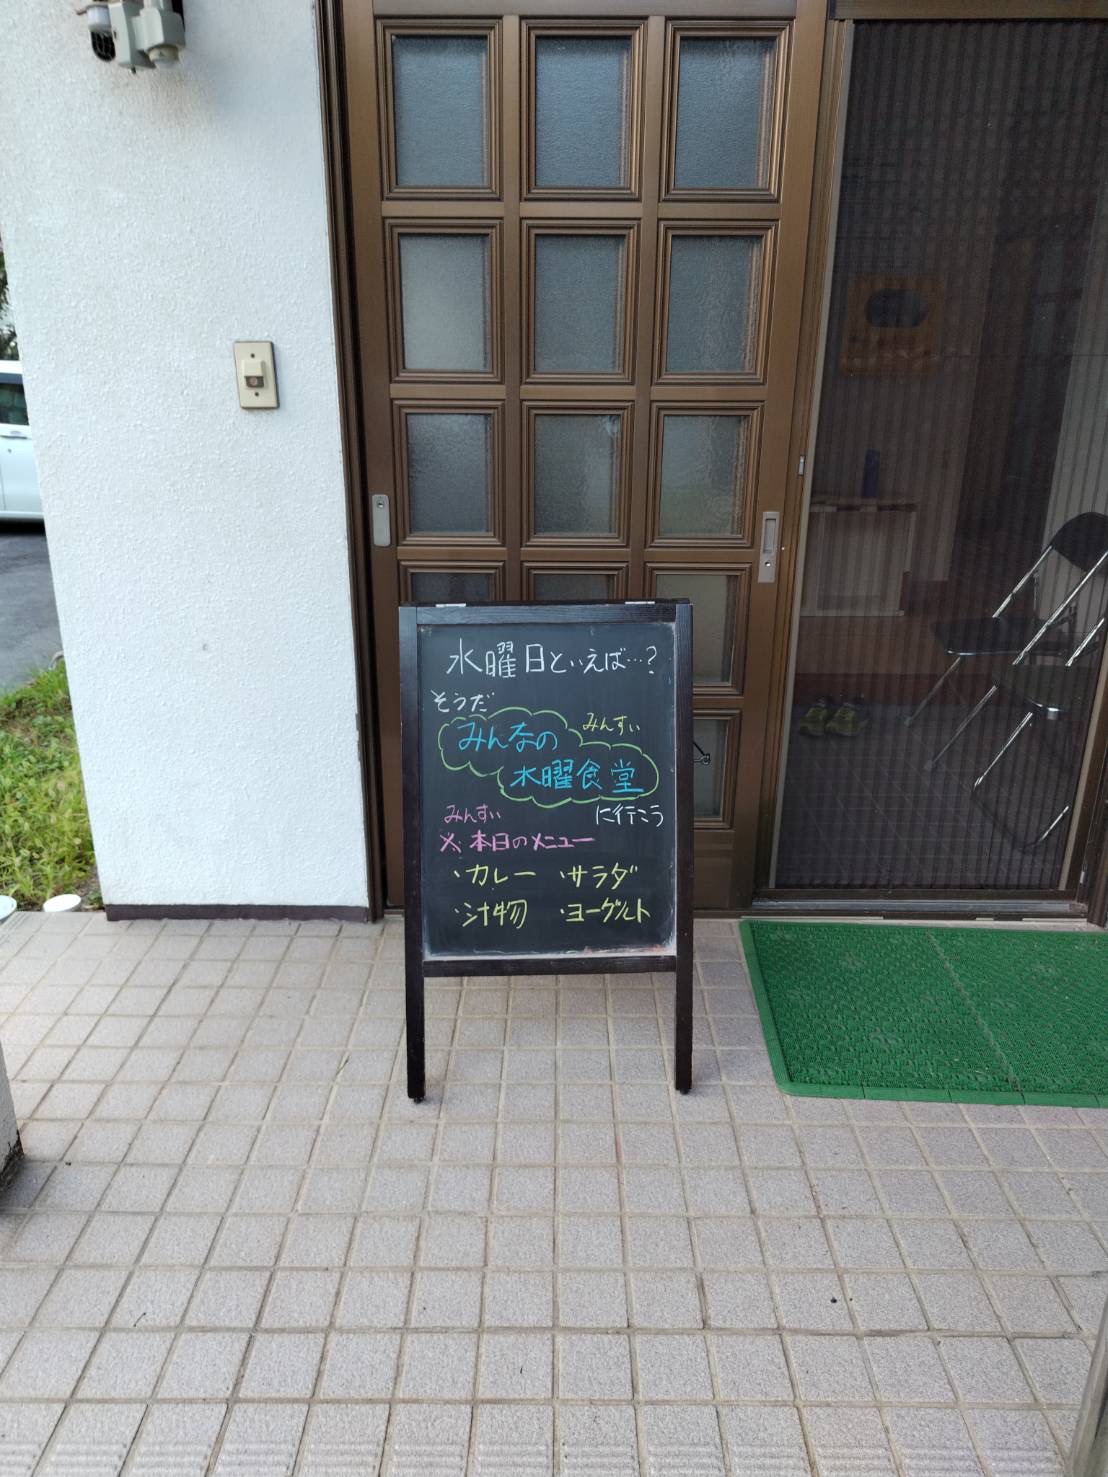 水曜日といえば…?
そうだ
みんすい
みんなの
水曜食堂
に行こう
みんすい
※本日のメニュー
・カレー ・サラダ
・汁物 ・ヨーグルト